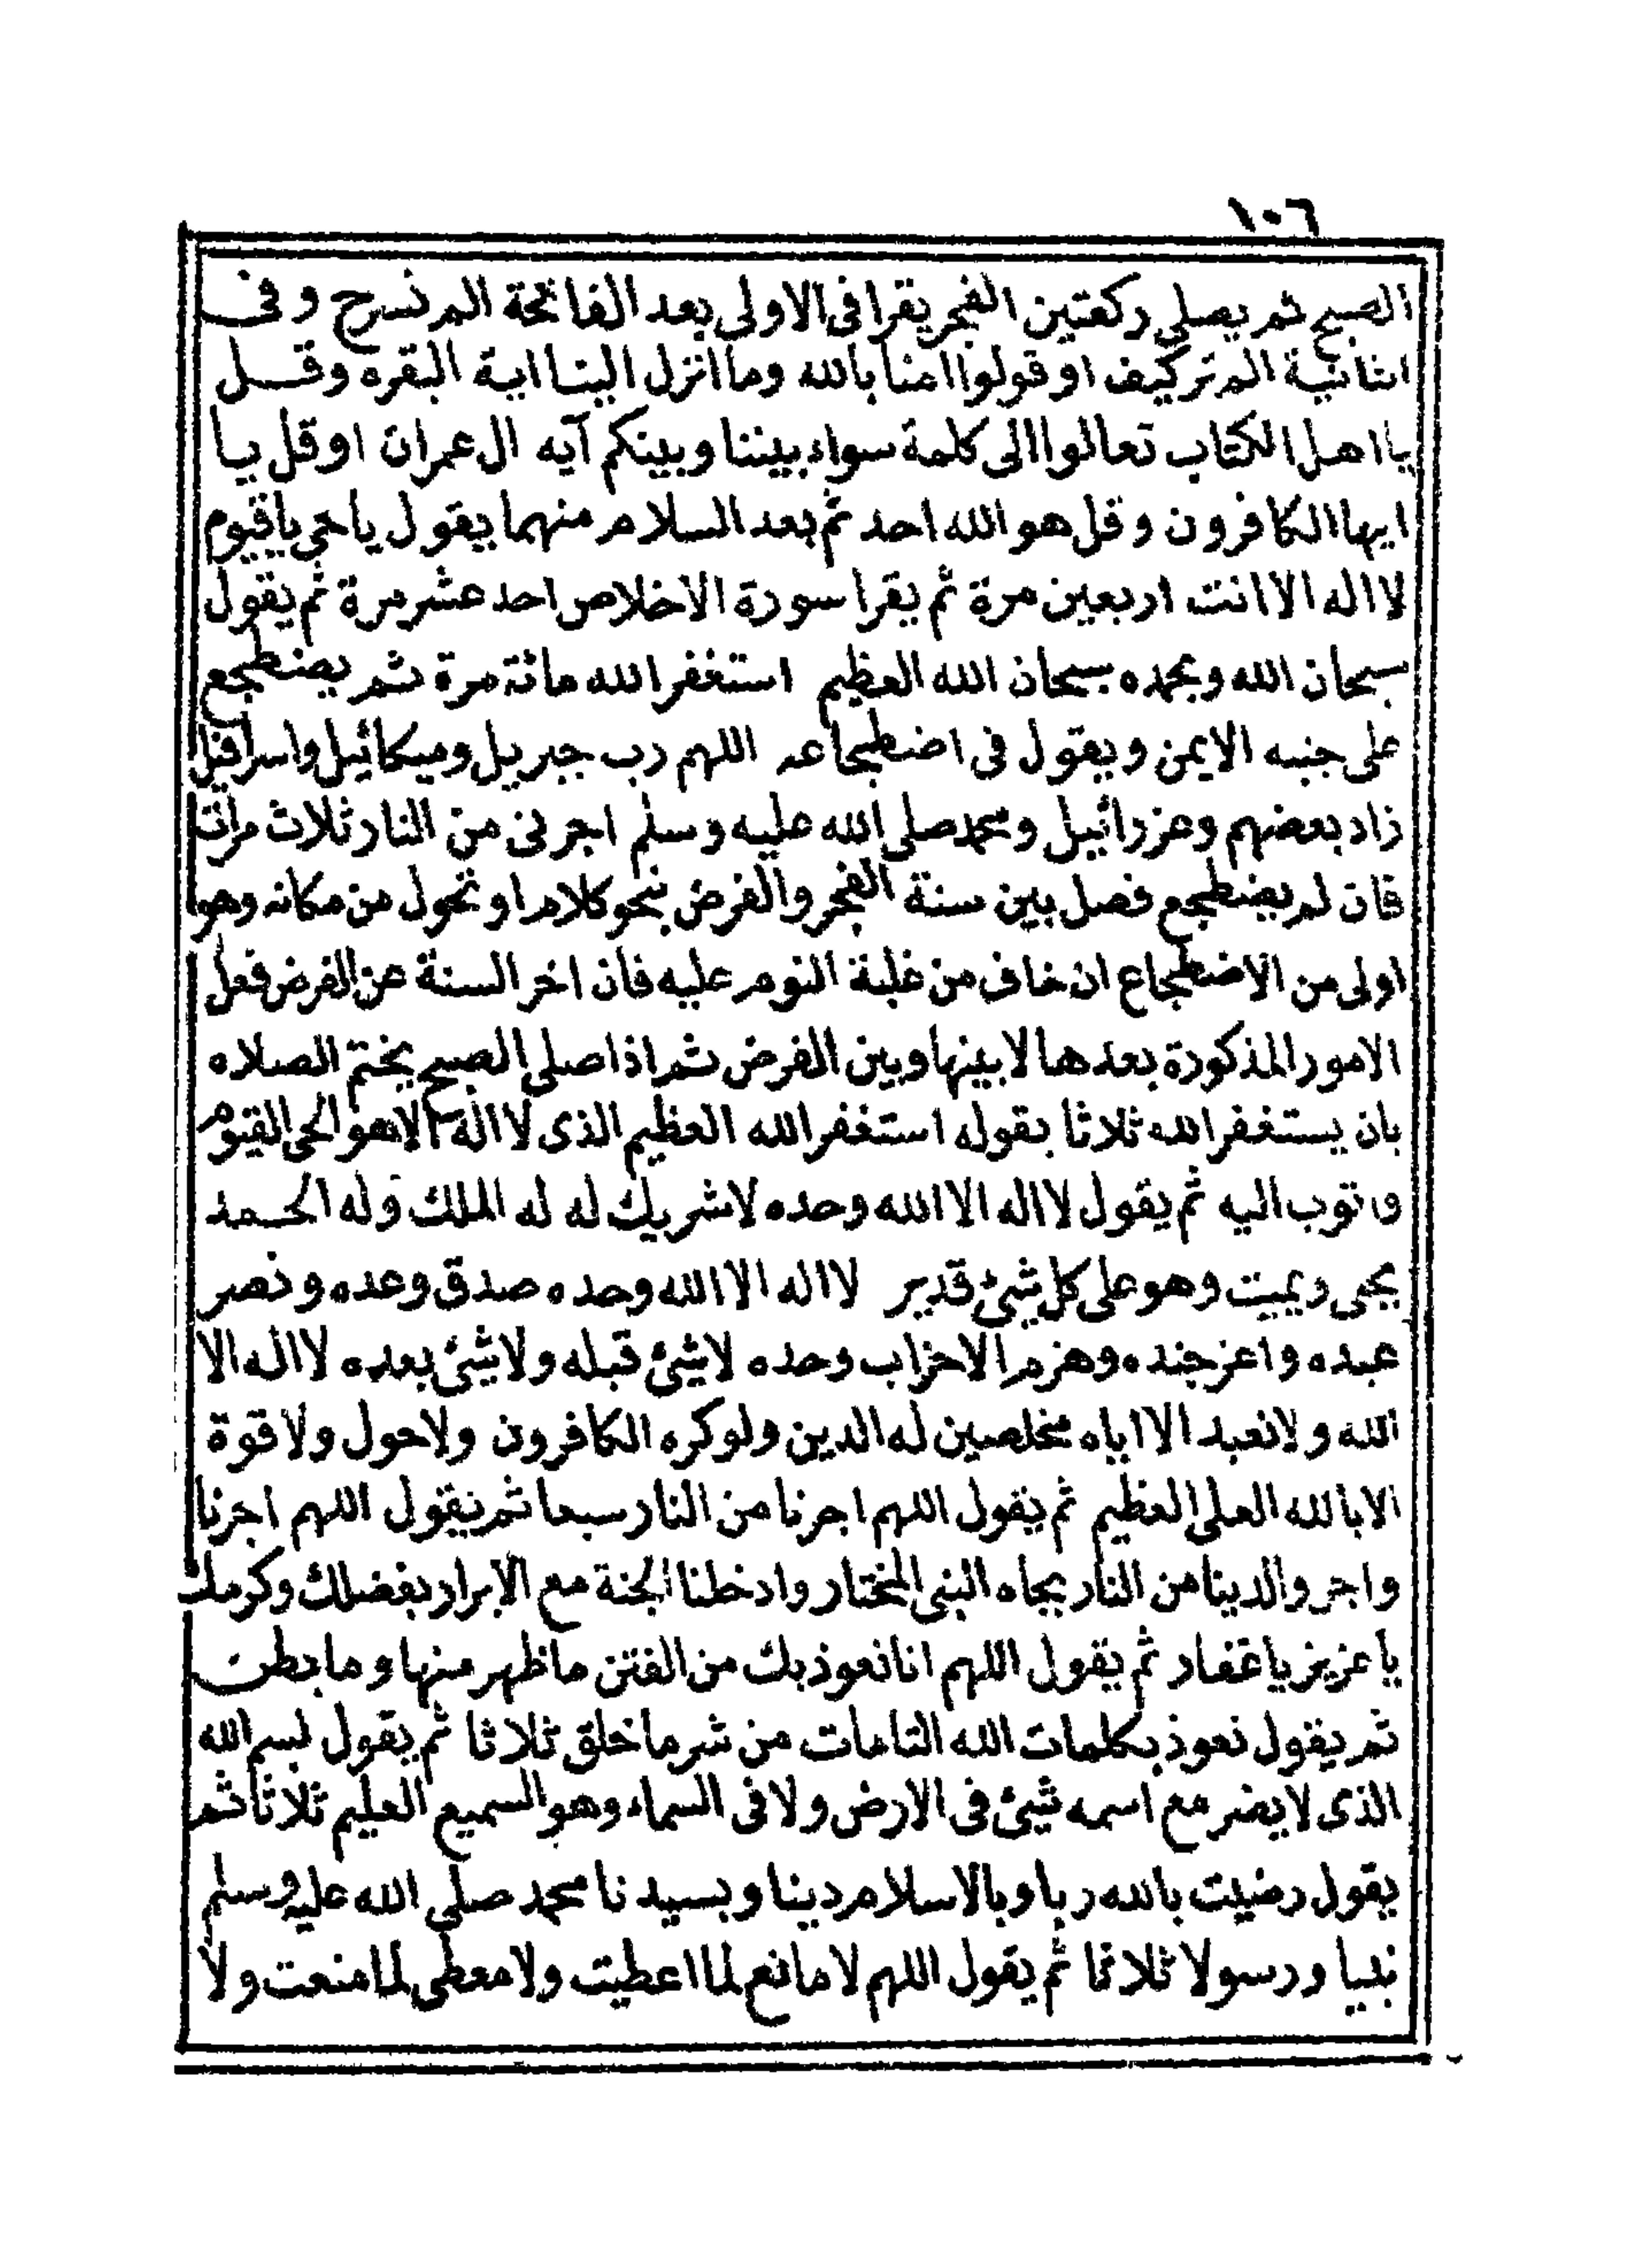 ١٠٦
الصبح ثم يصلي ركعتين الفجر يقرا في الاولى بعد الفاتحة الم نشرح وفي
الثانية الم تركيف او قولوا امنا بالله وما انزل الينا اية البقره وقل
يا اهل الكتاب تعالوا الى كلمة سواء بيننا وبينكم آيه ال عمران او قل يا
ايها الكافرون وقل هو الله احد ثم بعد السلام منهما يقول يا حي يا قيوم
لا اله الا انت اربعين مرة ثم يقرا سورة الاخلاص احد عشر مرة ثم يقول
سبحان الله وبحمده سبحان الله العظيم استغفر الله مائة مرة ثم يضطجع
على جنبه الايمن ويقول في اضطجاعه اللهم رب جبريل وميكائيل واسرافيل
زاد بعضهم وعزرائيل ومحمد صلى الله عليه وسلم اجرني من النار ثلاث مرات
فان لم يضطجع فصل بين سنة الفجر والفرض بنحو كلام او تحول من مكانه وهو
اولى من الاضطجاع ان خاف من غلبة النوم عليه فان اخر السنة عن الفرض فعل
الامور المذكورة بعدها لا بينها وبين الفرض ثم اذا صلى الصبح يختم الصلاه
بان يستغفر الله ثلاثا بقوله استغفر الله العظيم الذى لا اله الا هو الحي القيوم
واتوب اليه ثم يقول لا اله الا الله وحده لا شريك له له الملك وله الحمد
يحي ويميت وهو على كل شيئ قدير لا اله الا الله وحده صدق وعده ونصر
عبده واعز جنده وهزم الاحزاب وحده لا شيئ قبله ولا شيئ بعده لا اله الا
الله ولا نعبد الا اياه مخلصين له الدين ولو كره الكافرون ولا حول ولا قوة
الا بالله العلي العظيم ثم يقول اللهم اجرنا من النار سبعا ثم يقول اللهم اجرنا
واجر والدينا من النار بجاه النبي المختار وادخلنا الجنة مع الابرار بفضلك وكرمك
يا عزيز يا غفار ثم يقول اللهم انا نعوذ بك من الفتن ما ظهر منها وما بطن
ثم يقول نعوذ بكلمات الله التامات من شر ما خلق ثلاثا ثم يقول بسم الله
الذى لا يضر مع اسمه شيئ في الارض ولا في السماء وهو السميع العليم ثلاثا ثم
يقول رضيت بالله ربا وبالاسلام دينا وبسيدنا محمد صلى الله عليه وسلم
نبيا ورسولا ثلاثا ثم يقول اللهم لا مانع لما اعطيت ولا معطى لما منعت ولا